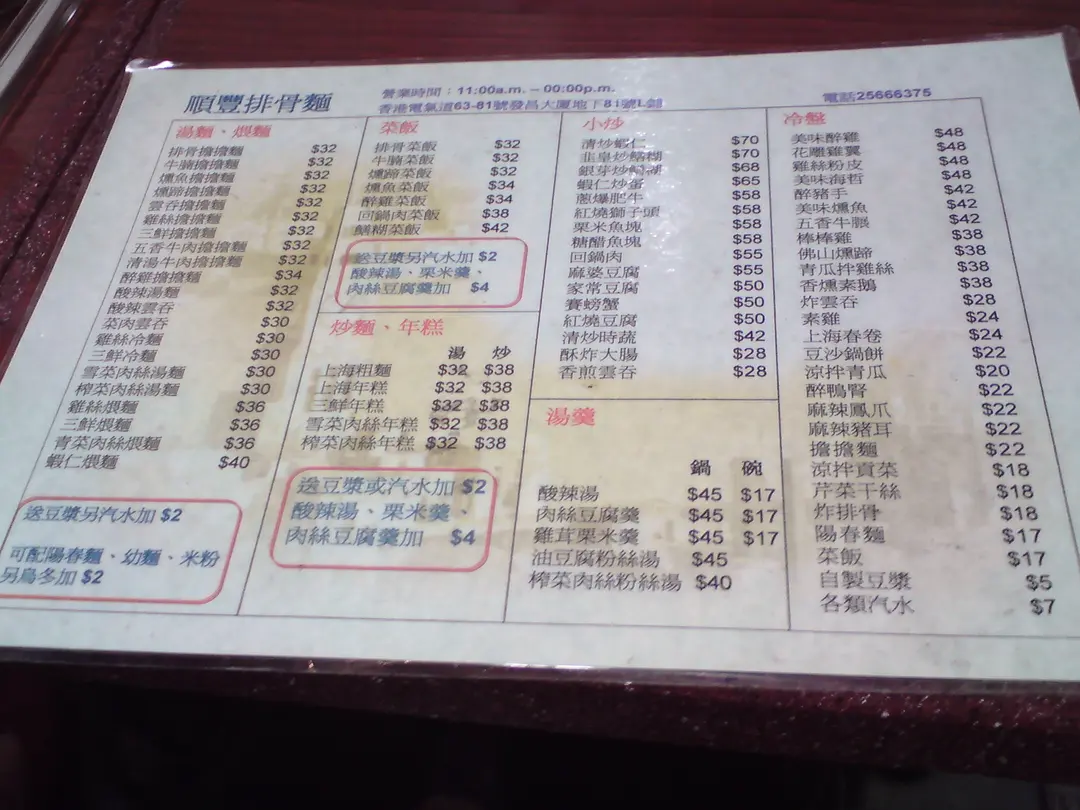 順豐排骨麵
營業時間：11:00a.m. – 00:00p.m.
香港電氣道63-81號發昌大廈地下81號L舖
電話25666375
湯麵、煨麵
排骨擔擔麵 $32
牛腩擔擔麵 $32
燻魚擔擔麵 $32
燻蹄擔擔麵 $32
雲吞擔擔麵 $32
雞絲擔擔麵 $32
三鮮擔擔麵 $32
五香牛肉擔擔麵 $32
清湯牛肉擔擔麵 $32
醉雞擔擔麵 $34
酸辣湯麵 $32
酸辣雲吞 $32
菜肉雲吞 $30
雞絲冷麵 $30
三鮮冷麵 $30
雪菜肉絲湯麵 $30
榨菜肉絲湯麵 $30
雞絲煨麵 $36
三鮮煨麵 $36
青菜肉絲煨麵 $36
蝦仁煨麵 $40
送豆漿另汽水加 $2
可配陽春麵、幼麵、米粉
另烏冬加 $2
菜飯
排骨菜飯 $32
牛腩菜飯 $32
燻蹄菜飯 $32
燻魚菜飯 $34
醉雞菜飯 $34
回鍋肉菜飯 $38
鱔糊菜飯 $42
送豆漿另汽水加 $2
酸辣湯、栗米羹、
肉絲豆腐羹加 $4
炒麵、年糕
湯 炒
上海粗麵 $32 $38
上海年糕 $32 $38
三鮮年糕 $32 $38
雪菜肉絲年糕 $32 $38
榨菜肉絲年糕 $32 $38
送豆漿或汽水加 $2
酸辣湯、栗米羹、
肉絲豆腐羹加 $4
小炒
清炒蝦仁 $70
韭皇炒鱔糊 $70
銀芽炒鱔糊 $68
蝦仁炒蛋 $65
蔥爆肥牛 $58
紅燒獅子頭 $58
栗米魚塊 $58
糖醋魚塊 $58
回鍋肉 $55
麻婆豆腐 $55
家常豆腐 $50
賽螃蟹 $50
紅燒豆腐 $50
清炒時蔬 $42
酥炸大腸 $28
香煎雲吞 $28
湯羹
鍋 碗
酸辣湯 $45 $17
肉絲豆腐羹 $45 $17
雞茸栗米羹 $45 $17
油豆腐粉絲湯 $45
榨菜肉絲粉絲湯 $40
冷盤
美味醉雞 $48
花雕雞翼 $48
雞絲粉皮 $48
美味海哲 $48
醉豬手 $42
美味燻魚 $42
五香牛𦟌 $42
棒棒雞 $38
佛山燻蹄 $38
青瓜拌雞絲 $38
香燻素鵝 $38
炸雲吞 $28
素雞 $24
上海春卷 $24
豆沙鍋餅 $22
涼拌青瓜 $20
醉鴨腎 $22
麻辣鳳爪 $22
麻辣豬耳 $22
擔擔麵 $22
涼拌貢菜 $18
芹菜干絲 $18
炸排骨 $18
陽春麵 $17
菜飯 $17
自製豆漿 $5
各類汽水 $7